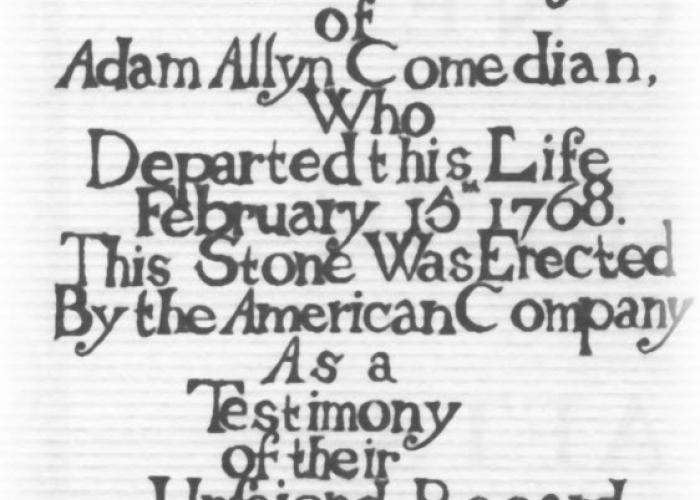 of
Adam Allyn Comedian,
Who
Departed this Life
February 15th 1768.
This Stone Was Erected
By the American Company
As a
Testimony
of their